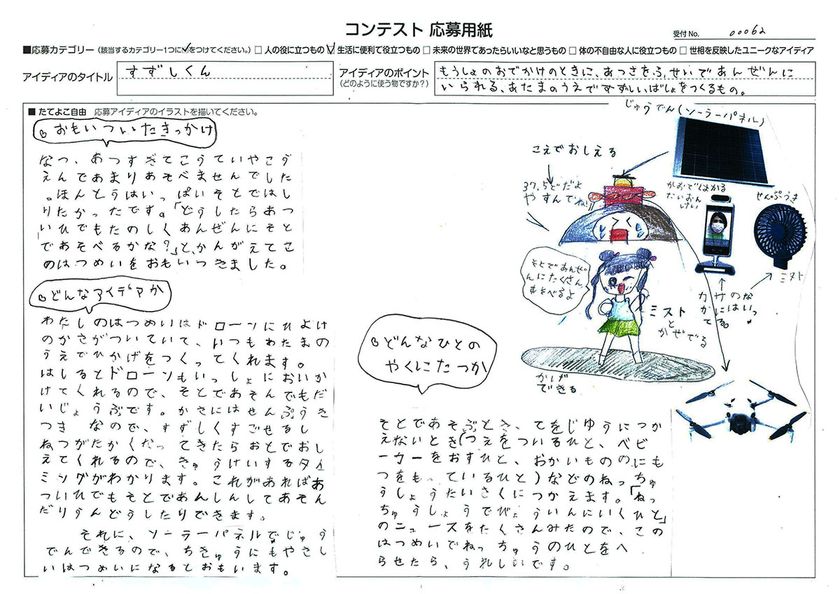 コンテスト 応募用紙
受付 No. 00062
■応募カテゴリー (該当するカテゴリー1つに✓をつけてください。) □ 人の役に立つもの ☑ 生活に便利で役立つもの □ 未来の世界であったらいいなと思うもの □ 体の不自由な人に役立つもの □ 世相を反映したユニークなアイディア
アイディアのタイトル すずしくん
アイディアのポイント (どのように使う物ですか?)
もうしょのおでかけのときに、あつさをふせいであんぜんに
いられる、あたまのうえですずしいばしょをつくるもの。
■ たてよこ自由 応募アイディアのイラストを描いてください。
おもいついたきっかけ
なつ、あつすぎてこうていやこう
えんであまりあそべませんでした
。ほんとうはいっぱいそとではし
りたかったです。「どうしたらあつ
いひでもたのしくあんぜんにそと
であそべるかな?」と、かんがえてこ
のはつめいをおもいつきました。
どんなアイデアか
わたしのはつめいはドローンにひよけ
のかさがついていて、いつもわたまの
うえでひかげをつくってくれます。
はしるとドローンもいっしょにおいか
けてくれるので、そとであそんでもだ
いじょうぶです。かさにはせんぷうき
つき なので、すずしくすごせるし
ねつがたかくなってきたらおとでおし
えてくれるので、きゅうけいするタイ
ミングがわかります。これがあればあ
ついひでもそとであんしんしてあそん
だりうんどうしたりできます。
それに、ソーラーパネルでじゅう
でんできるので、ちきゅうにもやさし
いはつめいになるとおもいます。
どんなひとの
やくにたつか
そとであそぶとき、てをじゆうにつか
えないとき(つえをついるひと、ベビ
ーカーをおすひと、おかいもののにも
つをもっているひと)などのねっちゅ
うしょうたいさくにつかえます。「ねっ
ちゅうしょうでびょういんにいくひと」
のニュースをたくさんみたので、この
はつめいでねっちゅうのひとをへ
らせたら、うれしいです。
じゅうでん(ソーラーパネル)
こえでおしえる
37.5どだよ
やすんでね!
かおではかる
たいおん
けい
せんぷうき
ミスト
そとであんぜ
んにたくさん
あそべるよ
ミスト
と
かぜでる
カサのな
かにはいっ
てる。
かげが
できる